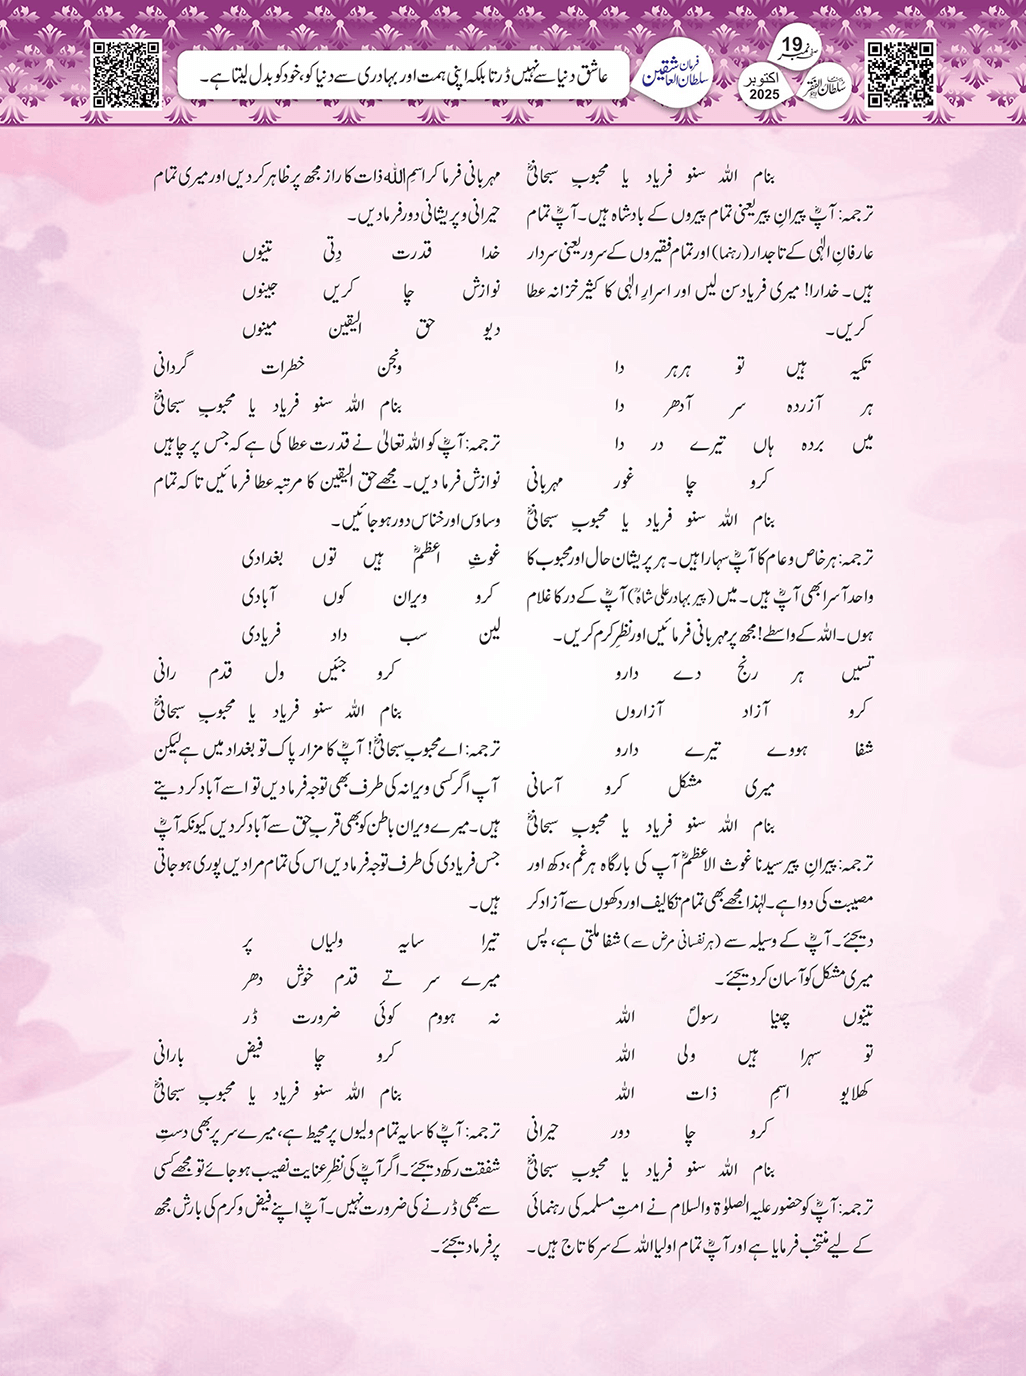 عاشق دنیا سے نہیں ڈرتا بلکہ اپنی ہمت اور بہادری سے دنیا کو، خود کو بدل لیتا ہے۔
فرمان سلطان العاشقین
صفحہ نمبر 19
ماہنامہ سلطان الفقر
اکتوبر 2025
بنام اللہ سنو فریاد یا محبوبِ سبحانیؓ
ترجمہ: آپؓ پیرانِ پیر یعنی تمام پیروں کے بادشاہ ہیں۔ آپؓ تمام
عارفانِ الٰہی کے تاجدار (رہنما) اور تمام فقیروں کے سرور یعنی سردار
ہیں۔ خدارا! میری فریاد سن لیں اور اسرارِ الٰہی کا کثیر خزانہ عطا
کریں۔
تکیہ ہیں تو ہرہر دا
ہر آزردہ سر آدھر دا
میں بردہ ہاں تیرے در دا
کرو چا غور مہربانی
بنام اللہ سنو فریاد یا محبوبِ سبحانیؓ
ترجمہ: ہر خاص و عام کا آپؓ سہارا ہیں۔ ہر پریشان حال اور محبوب کا
واحد آسرا بھی آپؓ ہیں۔ میں (پیر بہادر علی شاہؒ) آپؓ کے در کا غلام
ہوں۔ اللہ کے واسطے! مجھ پر مہربانی فرمائیں اور نظرِ کرم کریں۔
تسیں ہر رنج دے دارو
کرو آزاد آزاروں
شفا ہووے تیرے دارو
میری مشکل کرو آسانی
بنام اللہ سنو فریاد یا محبوبِ سبحانیؓ
ترجمہ: پیرانِ پیر سیدنا غوث الاعظمؓ آپ کی بارگاہ ہر غم، دکھ اور
مصیبت کی دوا ہے۔ لہٰذا مجھے بھی تمام تکالیف اور دکھوں سے آزاد کر
دیجئے۔ آپؓ کے وسیلہ سے (ہر نفسانی مرض سے) شفا ملتی ہے، پس
میری مشکل کو آسان کر دیجئے۔
تینوں چنیا رسولؐ اللہ
تو سہرا ہیں ولی اللہ
کھلایو اسمِ ذات اللہ
کرو چا دور حیرانی
بنام اللہ سنو فریاد یا محبوبِ سبحانیؓ
ترجمہ: آپؓ کو حضور علیہ الصلوٰۃ والسلام نے امتِ مسلمہ کی رہنمائی
کے لیے منتخب فرمایا ہے اور آپؓ تمام اولیا اللہ کے سر کا تاج ہیں۔
مہربانی فرما کر اسمِ اللہ ذات کا راز مجھ پر ظاہر کر دیں اور میری تمام
حیرانی و پریشانی دور فرما دیں۔
خدا قدرت دِتی تینوں
نوازش چا کریں جینوں
دیو حق الیقین مینوں
ونجن خطرات گردانی
بنام اللہ سنو فریاد یا محبوبِ سبحانیؓ
ترجمہ: آپؓ کو اللہ تعالیٰ نے قدرت عطا کی ہے کہ جس پر چاہیں
نوازش فرما دیں۔ مجھے حق الیقین کا مرتبہ عطا فرمائیں تاکہ تمام
وساوس اور خناس دور ہو جائیں۔
غوثِ اعظمؓ ہیں توں بغدادی
کرو ویران کوں آبادی
لین سب داد فریادی
کرو جئیں ول قدم رانی
بنام اللہ سنو فریاد یا محبوبِ سبحانیؓ
ترجمہ: اے محبوبِ سبحانیؓ! آپؓ کا مزار پاک تو بغداد میں ہے لیکن
آپ اگر کسی ویرانہ کی طرف بھی توجہ فرما دیں تو اسے آباد کر دیتے
ہیں۔ میرے ویران باطن کو بھی قربِ حق سے آباد کر دیں کیونکہ آپؓ
جس فریادی کی طرف توجہ فرما دیں اس کی تمام مرادیں پوری ہو جاتی
ہیں۔
تیرا سایہ ولیاں پر
میرے سر تے قدم خوش دھر
نہ ہووم کوئی ضرورت ڈر
کرو چا فیض بارانی
بنام اللہ سنو فریاد یا محبوبِ سبحانیؓ
ترجمہ: آپؓ کا سایہ تمام ولیوں پر محیط ہے، میرے سر پر بھی دستِ
شفقت رکھ دیجئے۔ اگر آپؓ کی نظرِ عنایت نصیب ہو جائے تو مجھے کسی
سے بھی ڈرنے کی ضرورت نہیں۔ آپؓ اپنے فیض و کرم کی بارش مجھ
پر فرما دیجئے۔